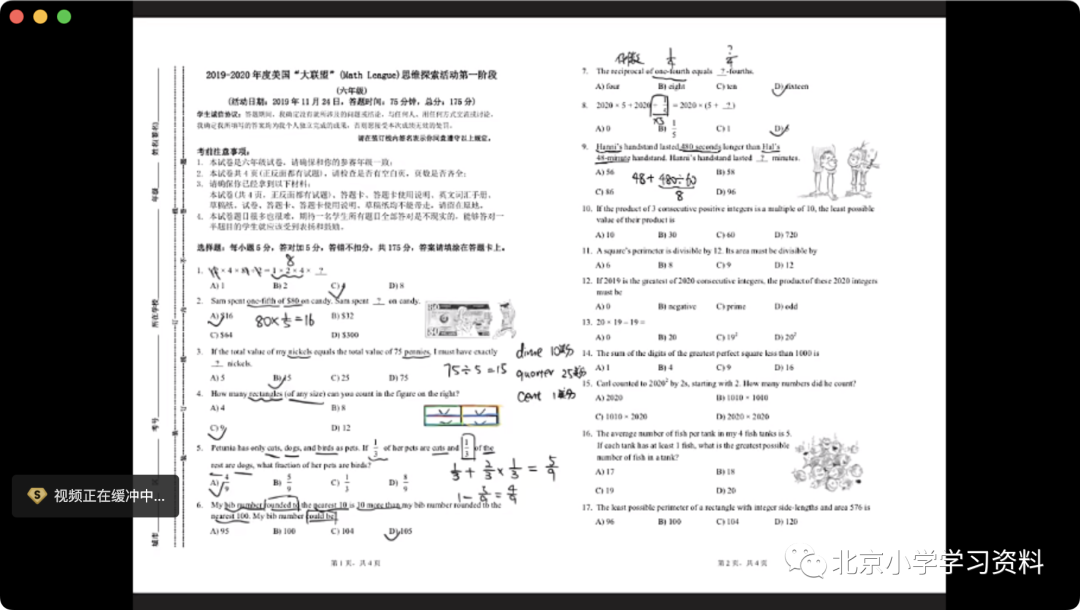 2019-2020 年度美国“大联盟”(Math League)思维探索活动第一阶段
(六年级)
(活动日期：2019 年 11 月 24 日，答题时间：75 分钟，总分：175 分)
学生诚信协议：
请在装订线内签名表示你同意遵守以上规定。
考前注意事项：
1. 本试卷是六年级试卷，请确保和你的参赛年级一致；
2. 本试卷共 4 页(正反面都有试题)，请检查是否有空白页，页数是否齐全；
3. 请确保你已经拿到以下材料：
本试卷(共 4 页，正反面都有试题)、答题卡、答题卡使用说明、英文词汇手册、
草稿纸。试卷、答题卡、答题卡使用说明、草稿纸均不能带走，请留在原地。
4. 本试卷题目很多也很难，期待一名学生所有题目全部答对是不现实的，能够答对一
半题目的学生就应该受到表扬和鼓励。
选择题：每小题 5 分，答对加 5 分，答错不扣分，共 175 分，答案请填涂在答题卡上。
8
A) 1 B) 2 C) 4 D) 8
2. Sam spent one-fifth of $80 on candy. Sam spent ? on candy.
A) $16 B) $32
80×1/5=16
C) $64 D) $300
3. If the total value of my nickels equals the total value of 75 pennies, I must have exactly
? nickels.
75÷5=15
A) 5 B) 15 C) 25 D) 75
dime 10美分
quarter 25美分
cent 1美分
4. How many rectangles (of any size) can you count in the figure on the right?
A) 4 B) 8
C) 9 D) 12
5. Petunia has only cats, dogs, and birds as pets. If 1/3 of her pets are cats and 1/3 of the
rest are dogs, what fraction of her pets are birds?
1/3+2/3×1/3=5/9
1-5/9=4/9
A) 4/9 B) 5/9 C) 1/3 D) 8/9
6. My bib number rounded to the nearest 10 is 10 more than my bib number rounded to the
nearest 100. My bib number could be
A) 95 B) 100 C) 104 D) 105
第 1 页，共 4 页
倒数 1/4 ?/4
7. The reciprocal of one-fourth equals ? -fourths.
A) four B) eight C) ten D) sixteen
8. 2020 × 5 + 2020 = 2020 × (5 + ? )
×3
A) 0 B) 1/5 C) 1 D)
9. Hanni's handstand lasted 480 seconds longer than Hal's
48-minute handstand. Hanni's handstand lasted ? minutes.
A) 56 B) 58
48+480÷60
8
C) 86 D) 96
10. If the product of 3 consecutive positive integers is a multiple of 10, the least possible
value of their product is
A) 10 B) 30 C) 60 D) 720
11. A square's perimeter is divisible by 12. Its area must be divisible by
A) 6 B) 8 C) 9 D) 12
12. If 2019 is the greatest of 2020 consecutive integers, the product of these 2020 integers
must be
A) 0 B) negative C) prime D) odd
13. 20 × 19 − 19 =
A) 0 B) 20 C) 19² D) 20²
14. The sum of the digits of the greatest perfect square less than 1000 is
A) 1 B) 4 C) 9 D) 16
15. Carl counted to 2020² by 2s, starting with 2. How many numbers did he count?
A) 2020 B) 1010 × 1010
C) 1010 × 2020 D) 2020 × 2020
16. The average number of fish per tank in my 4 fish tanks is 5.
If each tank has at least 1 fish, what is the greatest possible
number of fish in a tank?
A) 17 B) 18
C) 19 D) 20
17. The least possible perimeter of a rectangle with integer side-lengths and area 576 is
A) 96 B) 100 C) 104 D) 120
第 2 页，共 4 页
年级
所在学校
考号
城市
视频正在缓冲中...
北京小学学习资料